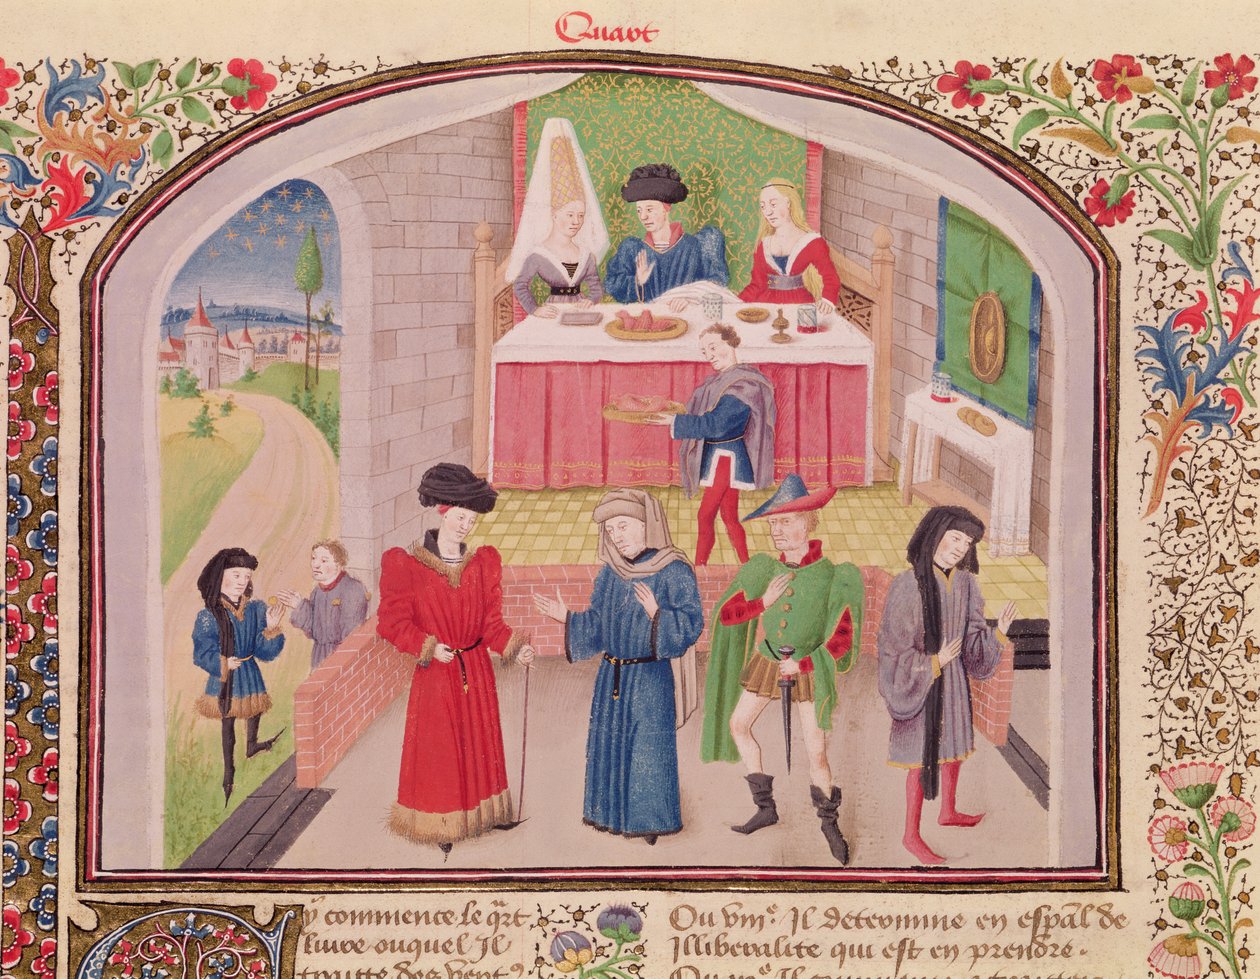 Quart
Cy commence le q̃rt
liure ouquel Il
traitte des v̾t⁹
Ou viiiᵉ. Il determine en esp̃al de
Illiberalite qui est en prendre.